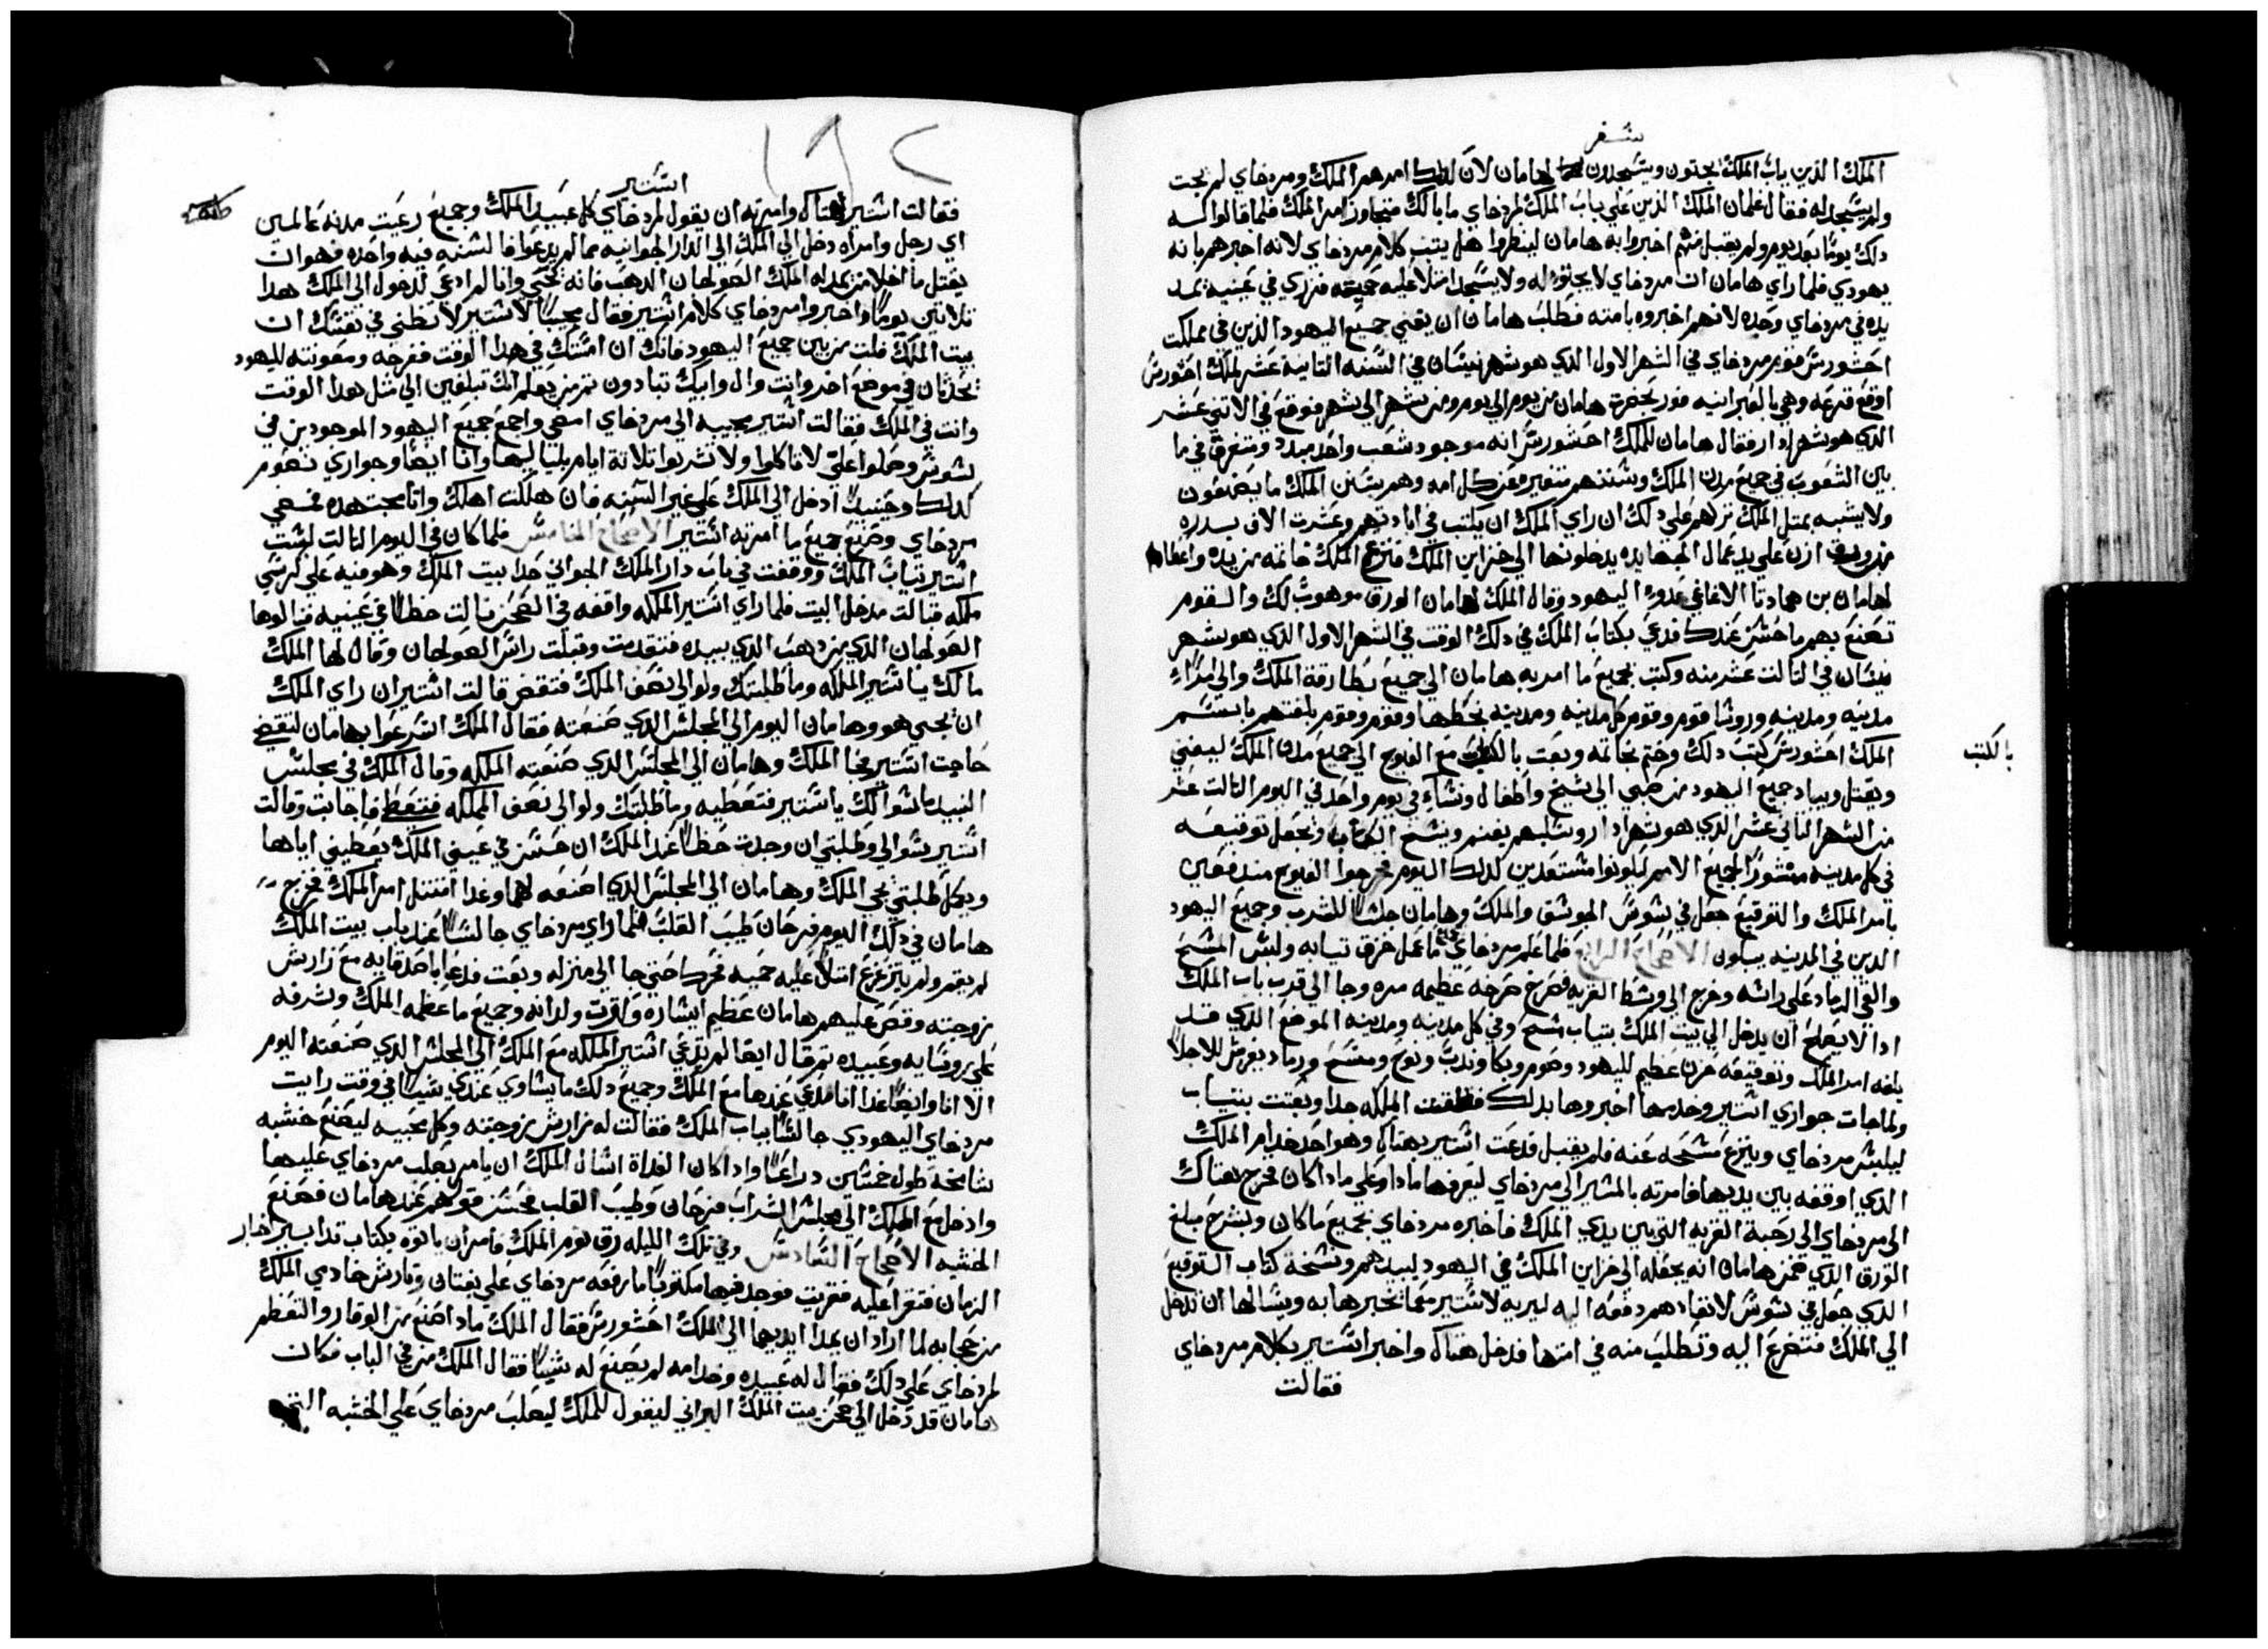 سفر
الملك الذين بباب الملك يجتون ويسجدون لهامان لان كذلك امرهم الملك ومردخاي لم يجت
ولم يسجد له فقال غلمان الملك الذين علي باب الملك لمردخاي ما بالك متجاوز امر الملك فلما قالوا له
دلك يومًا بعد يوم ولم يقبل منهم اخبروا به هامان لينظروا هل يتبت كلام مردخاي لانه اخبرهم بانه
يهودي فلما راي هامان ان مردخاي لا يجتو له ولا يسجد امتلا عليه حميه فزري في عينيه يمد
يده في مردخاي وحده لانهم اخبروه بامته فطلب هامان ان يفني جميع اليهود الذين في مملكت
احشورش قوم مردخاي في الشهر الاول الدي هو شهر نيسان في السنه التانية عشر لملك احشورش
اوقع قرعه وهي بالعبرانيه فور بحضرة هامان من يوم الي يوم ومن شهر الي شهر فوقع في الاتني عشر
الدي هو شهر ادار فقال هامان للملك احشورش انه موجود شعب واحد مبدد ومتفرق في ما
بين الشعوب في جميع مدن الملك وسنتهم تتغير من كل امه وهم بسنن الملك ما يصنعون
ولا يشبه بمتل الملك تركهم علي دلك ان راي الملك ان يكتب في ابادتهم وعشرت الاف بدره
من ورق ازن علي يد عمال الجهابده يدخلونها الي خزاين الملك فنزع الملك خاتمه من يده واعطاه
لهامان بن همادتا الاغاغي عدو اليهود وقال الملك لهامان الورق موهوب لك والقوم
تصنع بهم ما حسن عندك فدعي بكتاب الملك في دلك الوقت في الشهر الاول الدي هو شهر
نيسان في التالت عشر منه وكتب بجميع ما امر به هامان الي جميع بطارقة الملك والي امراء
مدينه ومدينه وروسا قوم وقوم كل مدينه ومدينه بخطها وقوم وقوم بلغتهم باسم
الملك احشورش كتب دلك وختم بخاتمه وبعت بالكتب مع الفيوج الي جميع مدن الملك ليفني
بالكتب
ويقتل ويباد جميع اليهود من صبي الي شيخ واطفال ونساء في يوم واحد في اليوم التالت عشر
من الشهر التاني عشر الدي هو شهر ادار وسلبهم يغنم ونسخ الكتاب وتجعل توقيعه
في كل مدينه منشورًا لجميع الامم ليكونوا مستعدين لدلك اليوم فخرجوا الفيوج مندفعين
بامر الملك والتوقيع جعل في شوش الجوسق والملك وهامان جلسا للشرب وجميع اليهود
الدين في المدينه يبكون الاصحاح الرابع فلما علم مردخاي ما عمل خرق تيابه ولبس المسح
والقي الرماد علي راسه وخرج الي وسط القريه فصرخ صرخه عظيمه مره وجا الي قرب باب الملك
ادا لا يصلح ان يدخل الي بيت الملك بتياب مسح وفي كل مدينه ومدينه الموضع الدي قد
بلغه امر الملك وتوقيعه حزن عظيم لليهود وصوم وبكا وندب ونوح ومسح ورماد يفرش للاجلا
ولما جات جواري استير وخدمها اخبروها بدلك فقلقت الملكه جدا وبعتت بتياب
ليلبس مردخاي وينزع مسحه عنه فلم يقبل فدعت استير بهتاك وهو احد خدام الملك
الدي اوقفه بين يديها فامرته بالمسير الي مردخاي ليعرفها مادا وعلي مادا كان فخرج هتاك
الي مردخاي الي رحبة القريه التي بين يدي الملك فاخبره مردخاي بجميع ما كان وبشرح مبلغ
الورق الدي ضمن هامان انه يجعله الي خزاين الملك في اليهود لبيدهم ونسخة كتاب التوقيع
الدي جعل في شوش لانفادهم دفعه اليه ليريه لاستير مع ما تخبرها به ويسالها ان تدخل
الي الملك فتتضرع اليه وتطلب منه في امتها فدخل هتاك واخبر استير بكلام مردخاي
فقالت
استير
فقالت استير لهتاك وامرته ان يقول لمردخاي كل عبيد الملك وجميع رعيت مدنه عالمين
اي رجل وامراه دخل الي الملك الي الدار الجوانيه مما لم يدعوا فالسنه فيه واحده فهو ان
يقتل ما خلا من يمد له الملك الصولجان الدهب فانه يحيي وانا لم ادعي لدخول الي الملك هدا
تلاتين يومًا واخبروا مردخاي كلام استير فقال مجيبا لاستير لا تظني في نفسك ان
بيت الملك فلت من بين جميع اليهود فانك ان امسكت في هدا الوقت ففرجه ومعونته لليهود
تحدتان في موضع اخر وانت وال وابيك تبادون تم من يعلم انك تبلغين الي متل هدا الوقت
وانت في الملك فقالت استير مجيبه الي مردخاي امضي واجمع جميع اليهود الموجودين في
شوش وصلوا علي لا تاكلوا ولا تشربوا تلاتة ايام بلياليها وانا ايضا وجواري نصوم
كدلك وحينيد ادخل الي الملك علي غير السنه فان هلكت اهلك وانا بحبت هده فمضي
مردخاي وصنع جميع ما امرته استير الاصحاح الخامس فلما كان في اليوم التالت لبست
استير تياب الملك ووقفت في باب دار الملك الجواني حدا بيت الملك وهو فيه علي كرسي
ملكه قبالت مدخل البيت فلما راي استير الملكه واقفه في الصحن نالت حظا في عينيه فناولها
الصولجان الدي من دهب الدي بيده فتقدمت وقبلت راس الصولجان وقال لها الملك
مالك يا استير الملكه وما طلبتك ولو الي نصف الملك فتقضي قالت استير ان راي الملك
ان يجي هو وهامان اليوم الي المجلس الدي صنعته فقال الملك اسرعوا بهامان لنقضي
حاجت استير فجا الملك وهامان الي المجلس الدي صنعته الملكه وقال الملك في مجلس
النبيد ما سوالك يا استير فتعطيه وما طلبتك ولو الي نصف المملكه فتعط فاجابت وقالت
استير سوالي وطلبتي ان وجدت حظا عند الملك ان حسن في عيني الملك يعطيني اياها
ويكمل طلبتي يجي الملك وهامان الي المجلس الدي اصنعه لهما وغدا امتتل امر الملك فخرج
هامان في دلك اليوم فرحان طيب القلب فلما راي مردخاي جالسا عند باب بيت الملك
لم يقم ولم يتزعزع امتلا عليه حميه فتحرك حتي جا الي منزله وبعت فدعا باصدقايه مع زارش
زوجته وقص عليهم هامان عظيم ايساره وكترت ولدانه وجميع ما عظمه الملك وشرفه
علي روسايه وعبيده تم قال ايضا لم تدعي استير الملكه مع الملك الي المجلس الدي صنعته اليوم
الا انا وايضا غدا انا مدعي عندها مع الملك وجميع دلك ما يساوي عندي شيا في وقت رايت
مردخاي اليهودي جالسًا بباب الملك فقالت له زارش زوجته وكل محبيه ليصنع خشبه
شامخه طول خمسين دراعا وادا كان الغداة اسال الملك ان يامر بصلب مردخاي عليها
وادخل مع الملك الي مجلس الشراب فرحان وطيب القلب فحسن قولهم عند هامان فصنع
الخشبه الاصحاح السادس وفي تلك الليله رق نوم الملك فامر ان ياتوه بكتاب تدابير اخبار
الزمان فتقرا عليه فقريت فوجد فيها مكتوبًا ما رفعه مردخاي علي بغتان وتارش خادمي الملك
من حجابه لما ارادا ان يمدا ايديهما الي الملك احشورش فقال الملك مادا صنع من الوقار والتعظم
لمردخاي علي دلك فقال له عبيده وخدامه لم يصنع له شيا فقال الملك من في الباب فكان
هامان قد دخل الي صحن بيت الملك البراني ليقول للملك ليصلب مردخاي علي الخشبه التي